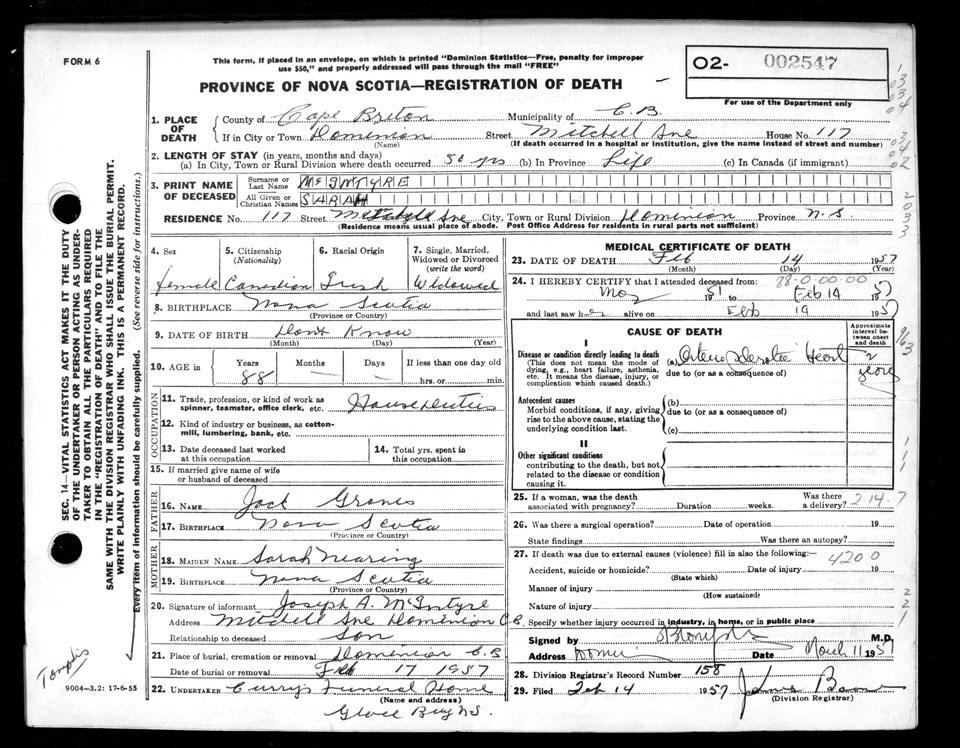 FORM 6
This form, if placed in an envelope, on which is printed "Dominion Statistics—Free, penalty for improper
use $50," and properly addressed will pass through the mail "FREE"
PROVINCE OF NOVA SCOTIA—REGISTRATION OF DEATH
O2- 002547
For use of the Department only
1. PLACE OF DEATH
County of Cape Breton Municipality of C.B.
If in City or Town Dominion Street Mitchell Ave House No. 117
(Name) (If death occurred in a hospital or institution, give the name instead of street and number)
2. LENGTH OF STAY (in years, months and days)
(a) In City, Town or Rural Division where death occurred 50 yrs (b) In Province Life (c) In Canada (if immigrant)
3. PRINT NAME OF DECEASED
Surname or Last Name McINTYRE
All Given or Christian Names SARAH
RESIDENCE No. 117 Street Mitchell Ave City, Town or Rural Division Dominion Province N.S.
(Residence means usual place of abode. Post Office Address for residents in rural parts not sufficient)
4. Sex 5. Citizenship (Nationality) 6. Racial Origin 7. Single, Married, Widowed or Divorced (write the word)
female Canadian Irish Widowed
8. BIRTHPLACE Nova Scotia
(Province or Country)
9. DATE OF BIRTH Dont Know
(Month) (Day) (Year)
10. AGE in Years Months Days If less than one day old
88 — — hrs. or min.
OCCUPATION
11. Trade, profession, or kind of work as
spinner, teamster, office clerk, etc. House Duties
12. Kind of industry or business, as cotton-
mill, lumbering, bank, etc.
13. Date deceased last worked
at this occupation
14. Total yrs. spent in
this occupation
15. If married give name of wife
or husband of deceased
FATHER
16. NAME Jack Groves
17. BIRTHPLACE Nova Scotia
(Province or Country)
MOTHER
18. MAIDEN NAME Sarah Nearing
19. BIRTHPLACE Nova Scotia
(Province or Country)
20. Signature of informant Joseph A. McIntyre
Address Mitchell Ave Dominion C.B.
Relationship to deceased Son
21. Place of burial, cremation or removal Dominion C.B
Date of burial or removal Feb 17 1957
22. UNDERTAKER Curry's Funeral Home
(Name and address)
Glace Bay N.S.
MEDICAL CERTIFICATE OF DEATH
23. DATE OF DEATH Feb 14 1957
(Month) (Day) (Year)
24. I HEREBY CERTIFY that I attended deceased from: 88-0 00-00
1951 to Feb 14 1957
and last saw her alive on Feb 14 1957
CAUSE OF DEATH
Approximate interval between onset and death
I
Disease or condition directly leading to death
(This does not mean the mode of
dying, e.g., heart failure, asthenia,
etc. It means the disease, injury, or
complication which caused death.)
(a) Heart 2 years
due to (or as a consequence of)
Antecedent causes
Morbid conditions, if any, giving
rise to the above cause, stating the
underlying condition last.
(b)
due to (or as a consequence of)
(c)
II
Other significant conditions
contributing to the death, but not
related to the disease or condition
causing it.
25. If a woman, was the death
associated with pregnancy? Duration weeks. Was there
a delivery? 214.7
26. Was there a surgical operation? Date of operation 19
State findings Was there an autopsy?
27. If death was due to external causes (violence) fill in also the following:— 4200
Accident, suicide or homicide? Date of injury 19
(State which)
Manner of injury
(How sustained)
Nature of injury
Specify whether injury occurred in industry, in home, or in public place
Signed by M.D.
Address Date March 11 1957
28. Division Registrar's Record Number 158
29. Filed Feb 14 1957
(Division Registrar)
SEC. 14—VITAL STATISTICS ACT MAKES IT THE DUTY
OF THE UNDERTAKER OR PERSON ACTING AS UNDER-
TAKER TO OBTAIN ALL THE PARTICULARS REQUIRED
IN THE "REGISTRATION OF DEATH" AND TO FILE THE
SAME WITH THE DIVISION REGISTRAR WHO SHALL ISSUE THE BURIAL PERMIT.
WRITE PLAINLY WITH UNFADING INK. THIS IS A PERMANENT RECORD.
Every item of information should be carefully supplied. (See reverse side for instructions.)
9004-3.2: 17-6-55